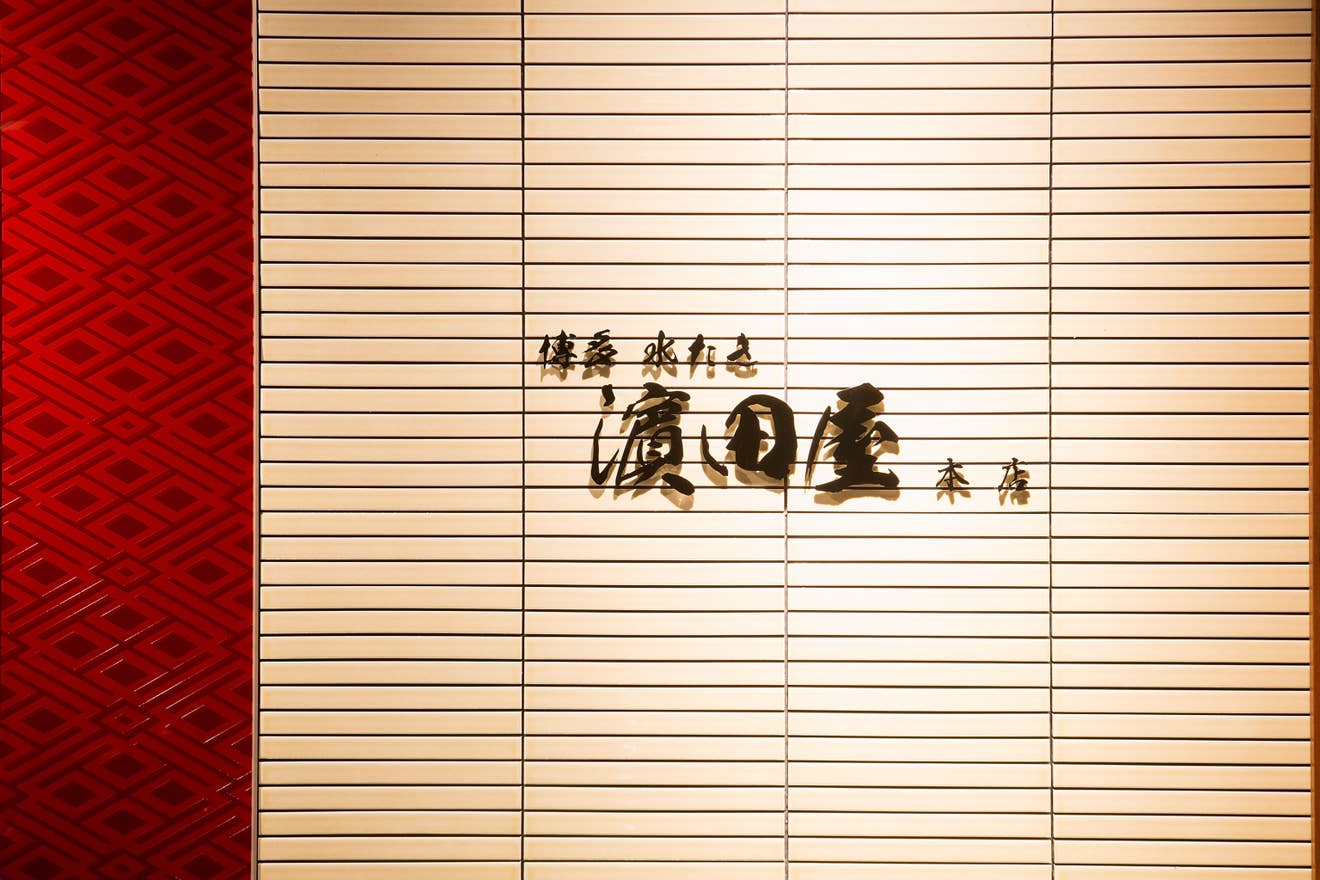 博多 水たき
濵田屋 本店